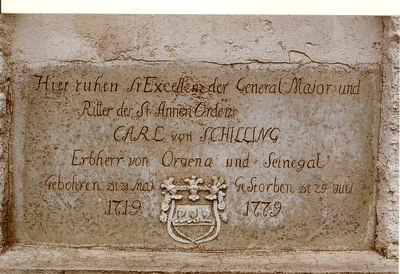 Hier ruhen Sr Excellenz der General Major und
Ritter des St Annen Ordens
CARL von SCHILLING
Erbherr von Orgena und Seinegal
Gebohren Gestorben
1719 1779